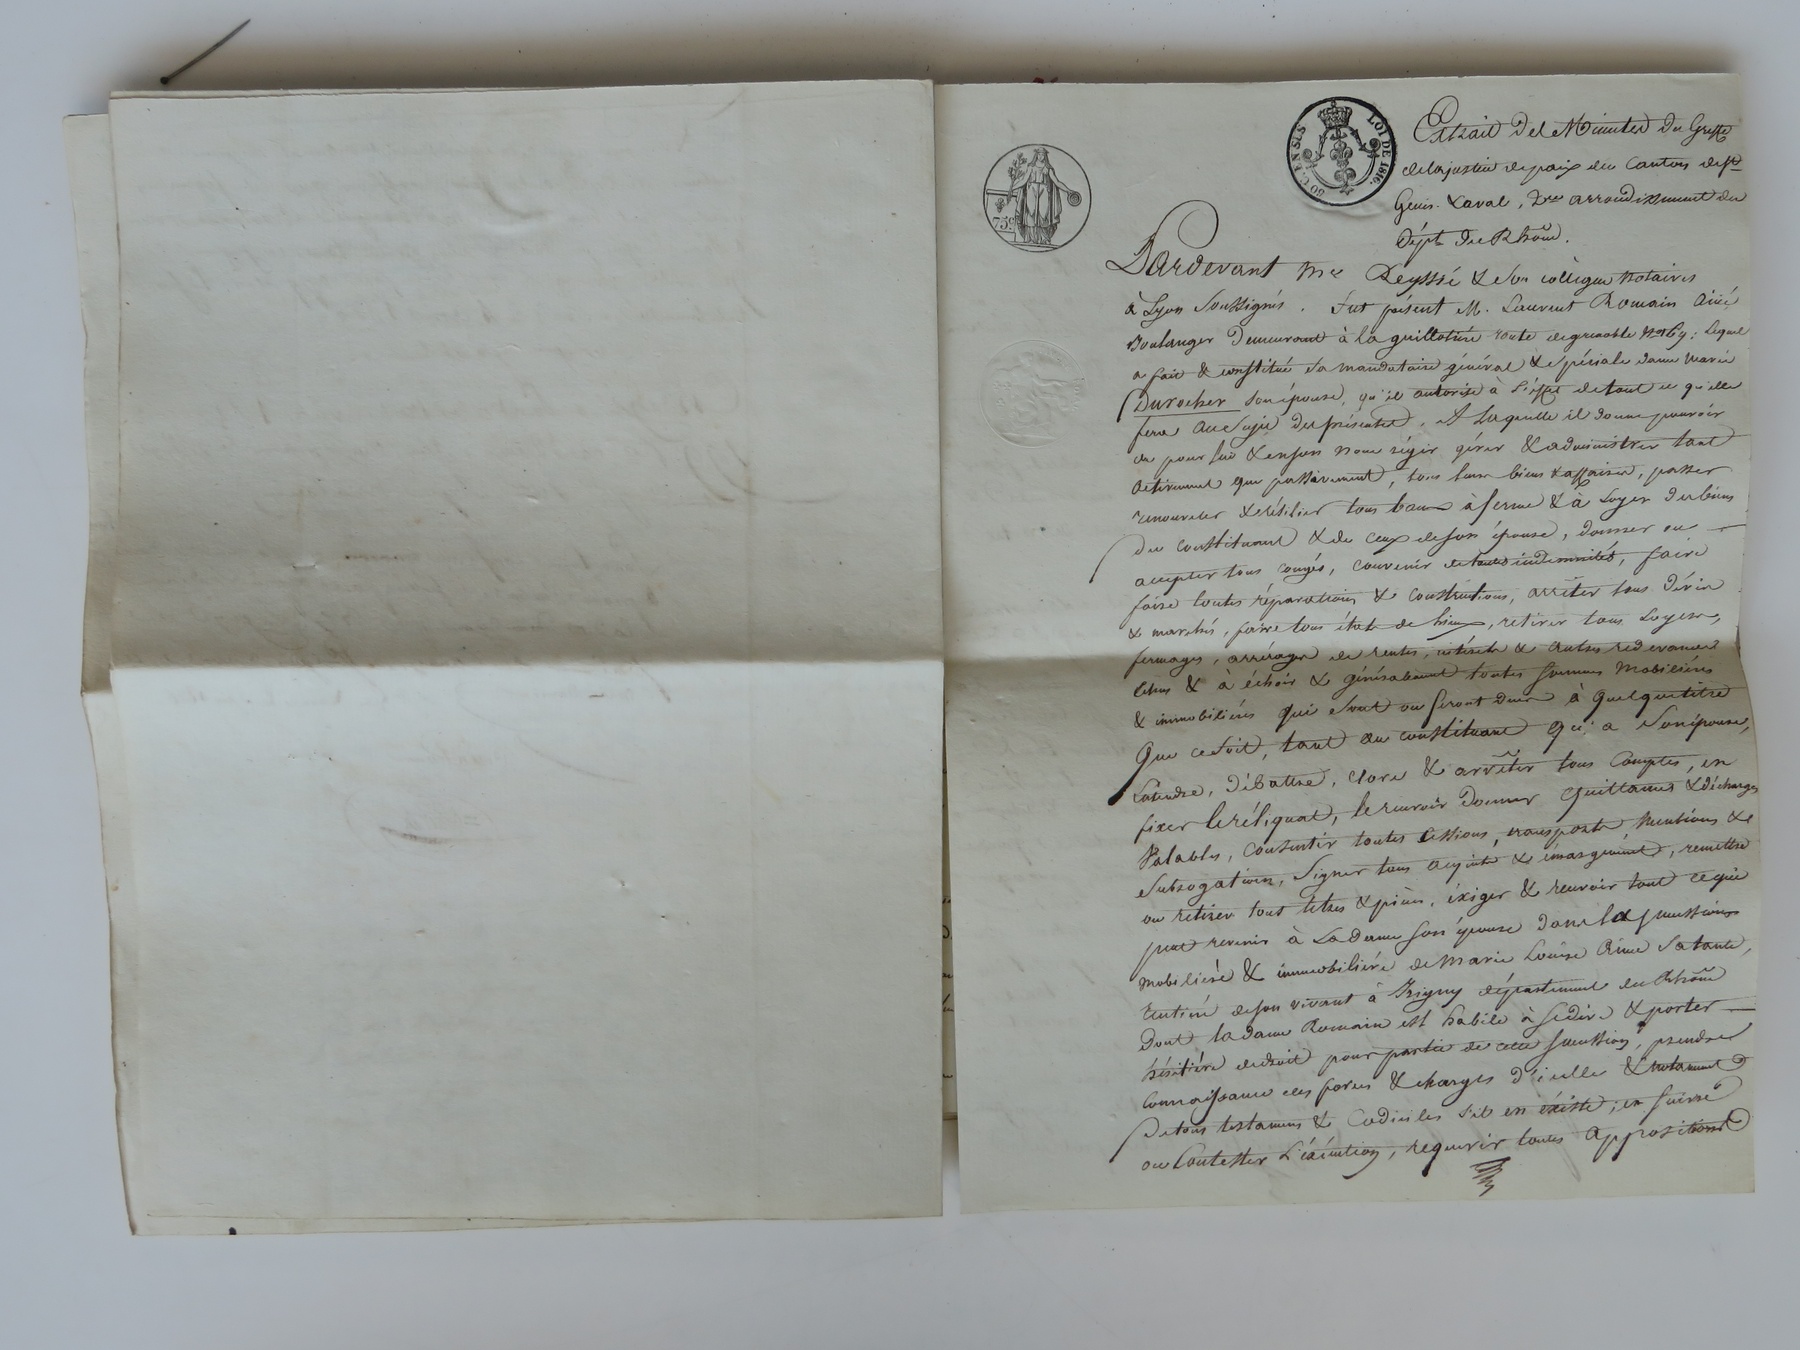 75 c
50 C. EN SUS LOI DE 1816.
Extrait des Minutes du Greffe
de la justice de paix du Canton de St
Genis-Laval, 2me arrondissement du
dépt du Rhône.
Pardevant Me & son collègue Notaires
à Lyon Soussignés. fut présent M. Laurent Romain Aîné
Boulanger demeurant à la guillotière route de grenoble No ; Lequel
a fait & constitué sa mandataire générale & spéciale dame Marie
Durocher son épouse, qu'il autorise à l'effet de tout ce qu'elle
fera au Sujet des présentes. A laquelle il donne pouvoir
de pour lui & en son Nom régir gérer & administrer tant
activement que passivement, tous leurs biens & affaires, passer
renouveler & résilier tous baux à ferme & à Loyer des biens
du constituant & de ceux de son épouse, donner ou
accepter tous congés, convenir de toutes indemnités, faire
faire toutes réparations & constructions, arrêter tous dévis
& marchés, faire tous état de lieux, retirer tous Loyers,
fermages, arrérages de rentes, intérêts & autres redevances
échus & à échoir & généralement toutes sommes Mobilières
& immobilières qui sont ou seront dues à quelque titre
que ce soit, tant au constituant qu'à son épouse,
entendre, débattre, clore & arrêter tous Comptes, en
fixer le réliquat, le recevoir donner quittances & décharges
Valables, consentir toutes cessions, transports, mentions &
subrogations, signer tous acquits & émargements, remettre
ou retirer tous titres & pièces, éxiger & recevoir tout ce qui
peut revenir à La dame son épouse dans la succession
mobilière & immobilière de Marie Louise Aimé sa tante,
rentière de son vivant à Irigny département du Rhône
dont la dame Romain est habile à se dire & porter
héritière de droit pour partie de cette succession, prendre
connaissance des forces & charges d'icelle & notamment
de tous testamens & Codiciles s'il en éxiste; en suivre
ou Contester L'éxécution, requérir toutes appositions